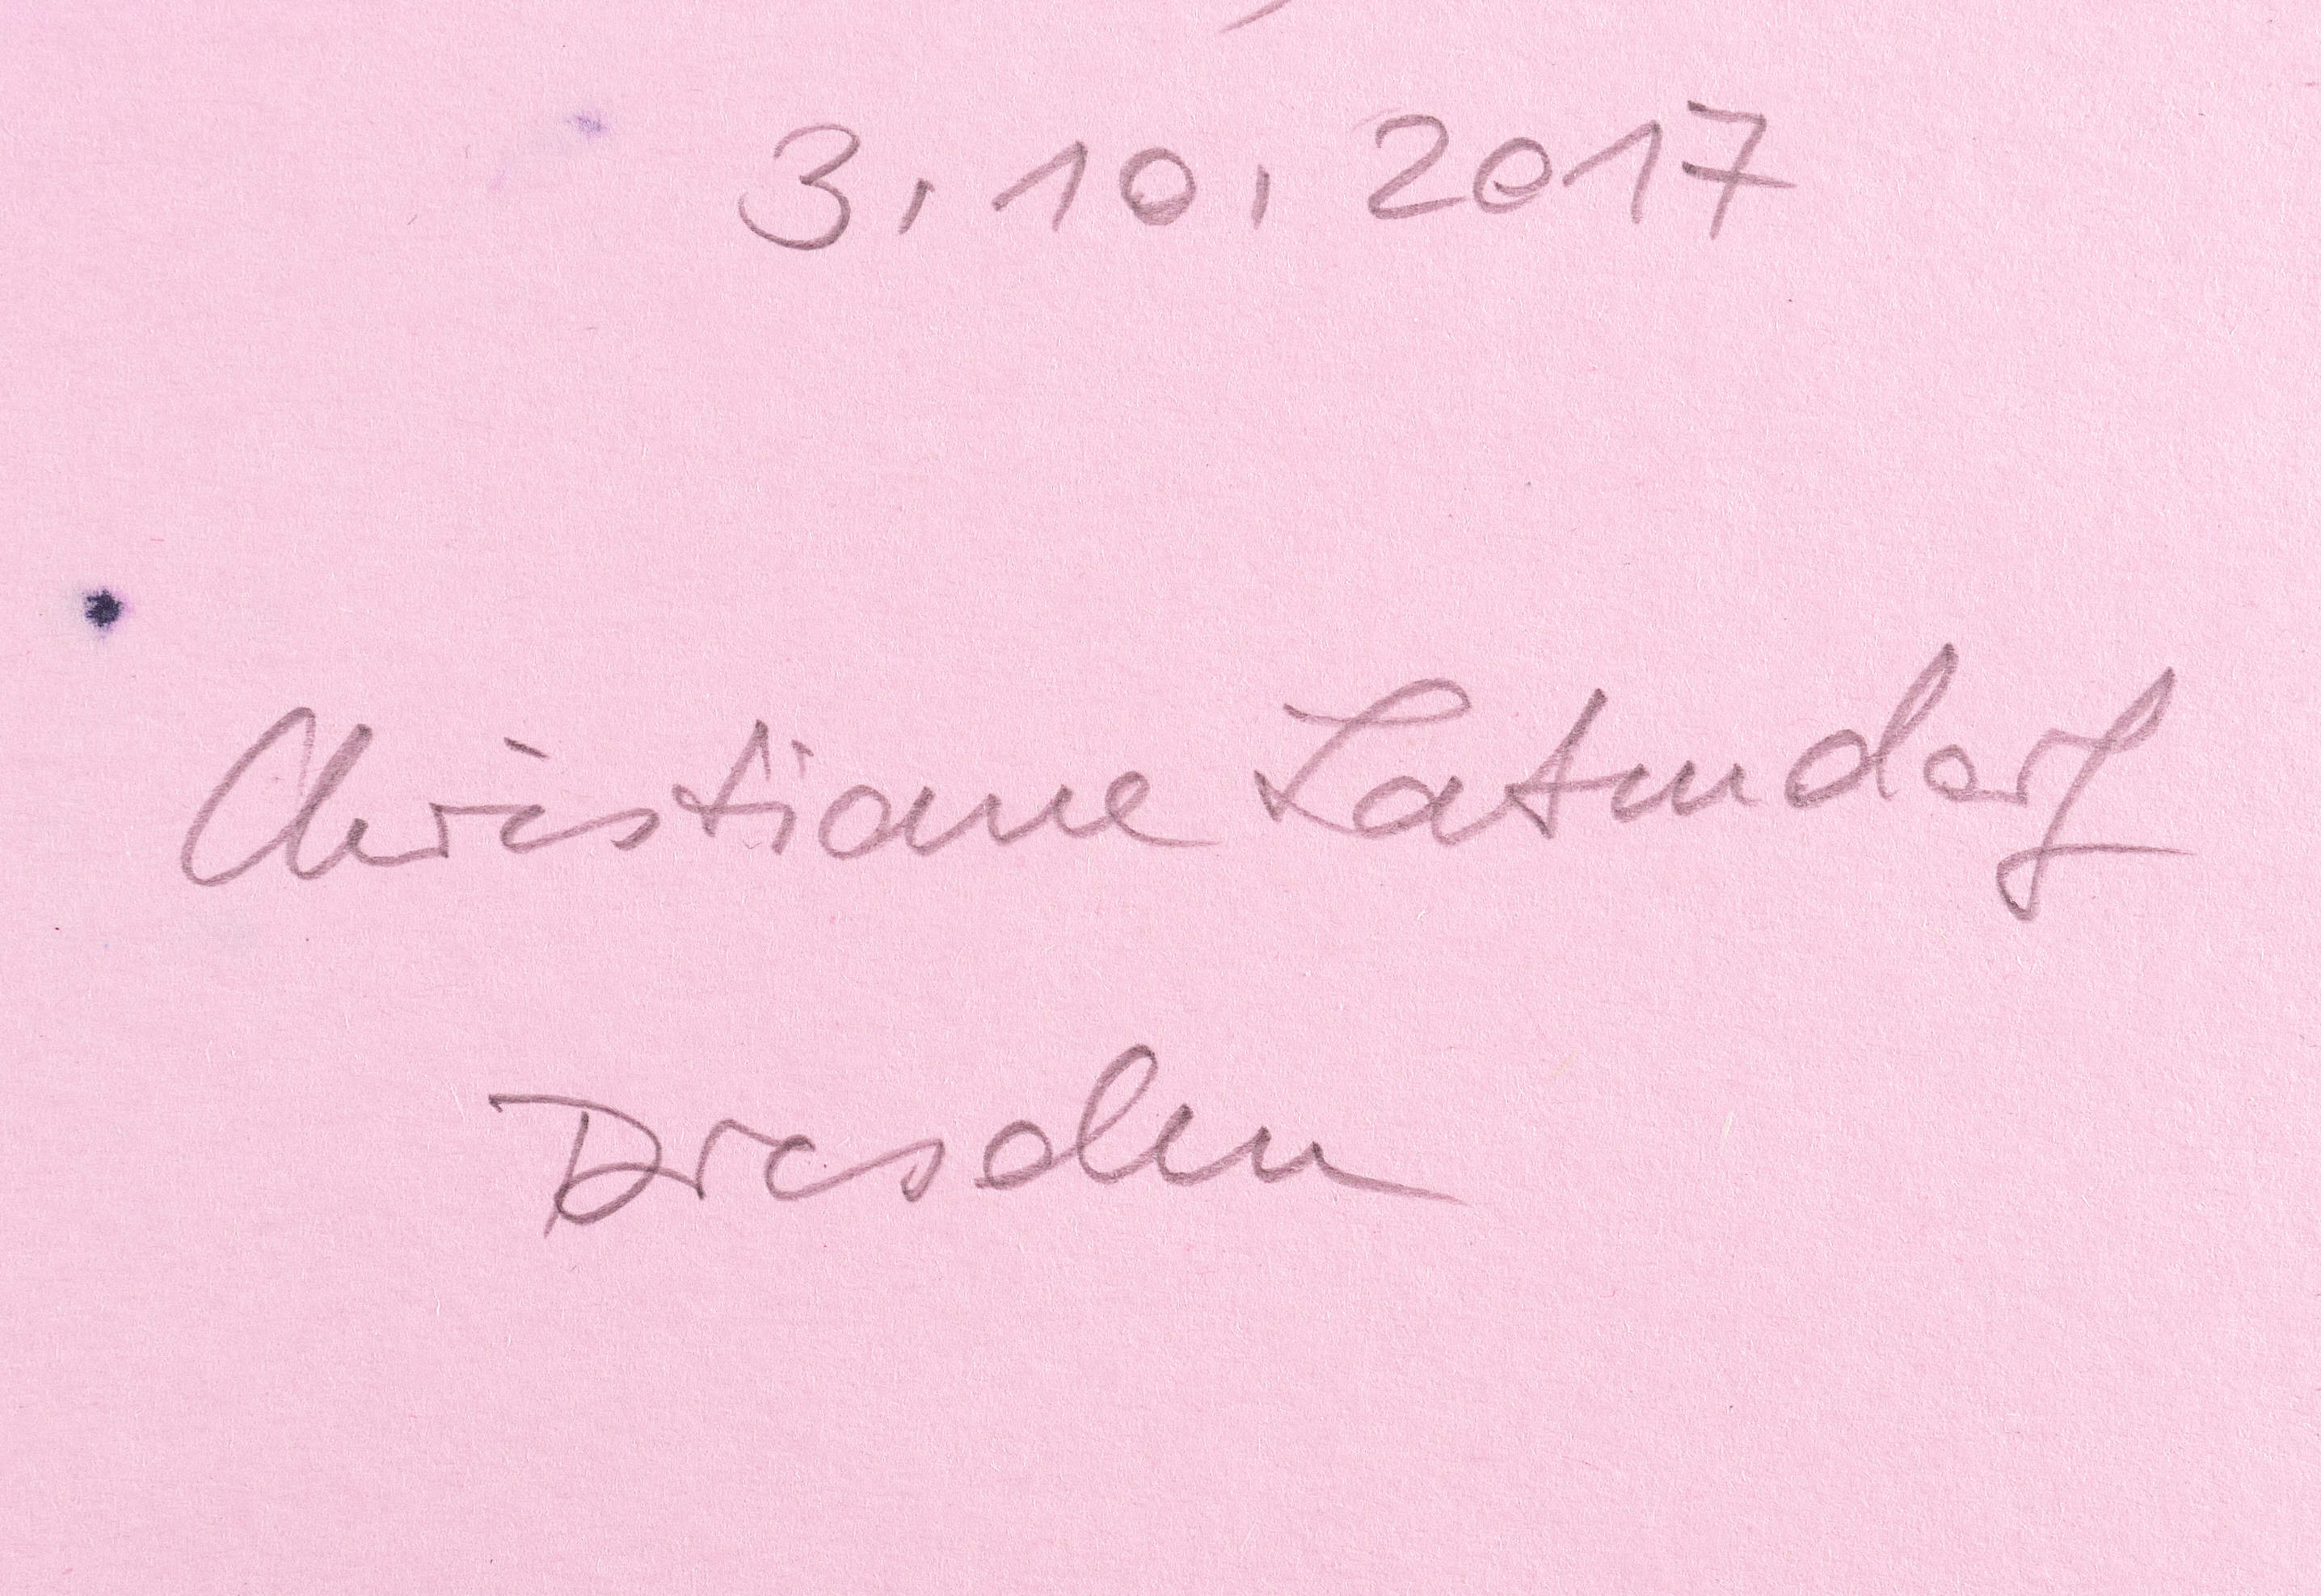 3. 10. 2017
Christiane Latendorf
Dresden